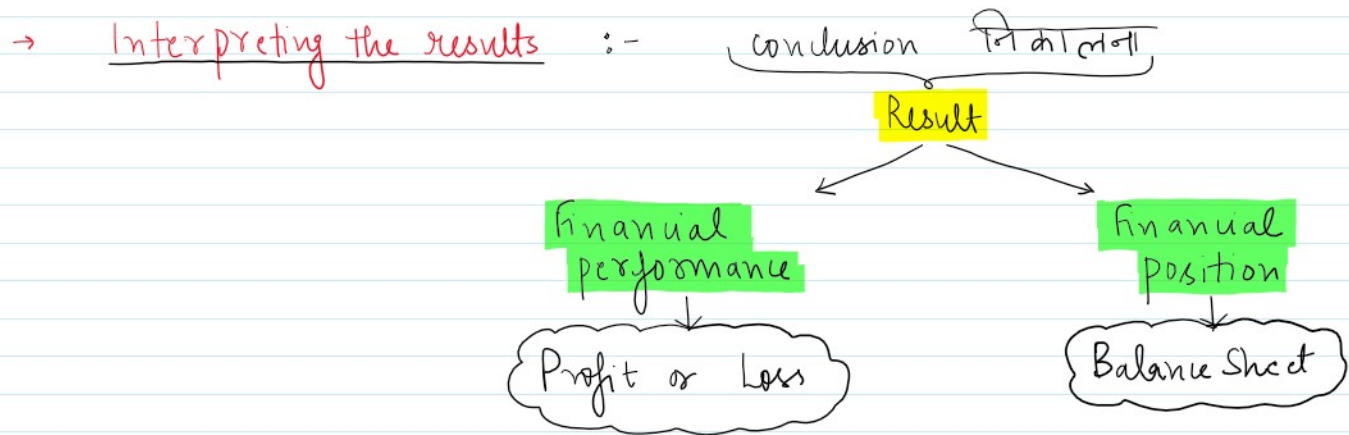 → Interpreting the results :- conclusion निकालना
Result
Financial Financial
performance position
Profit or Loss Balance Sheet